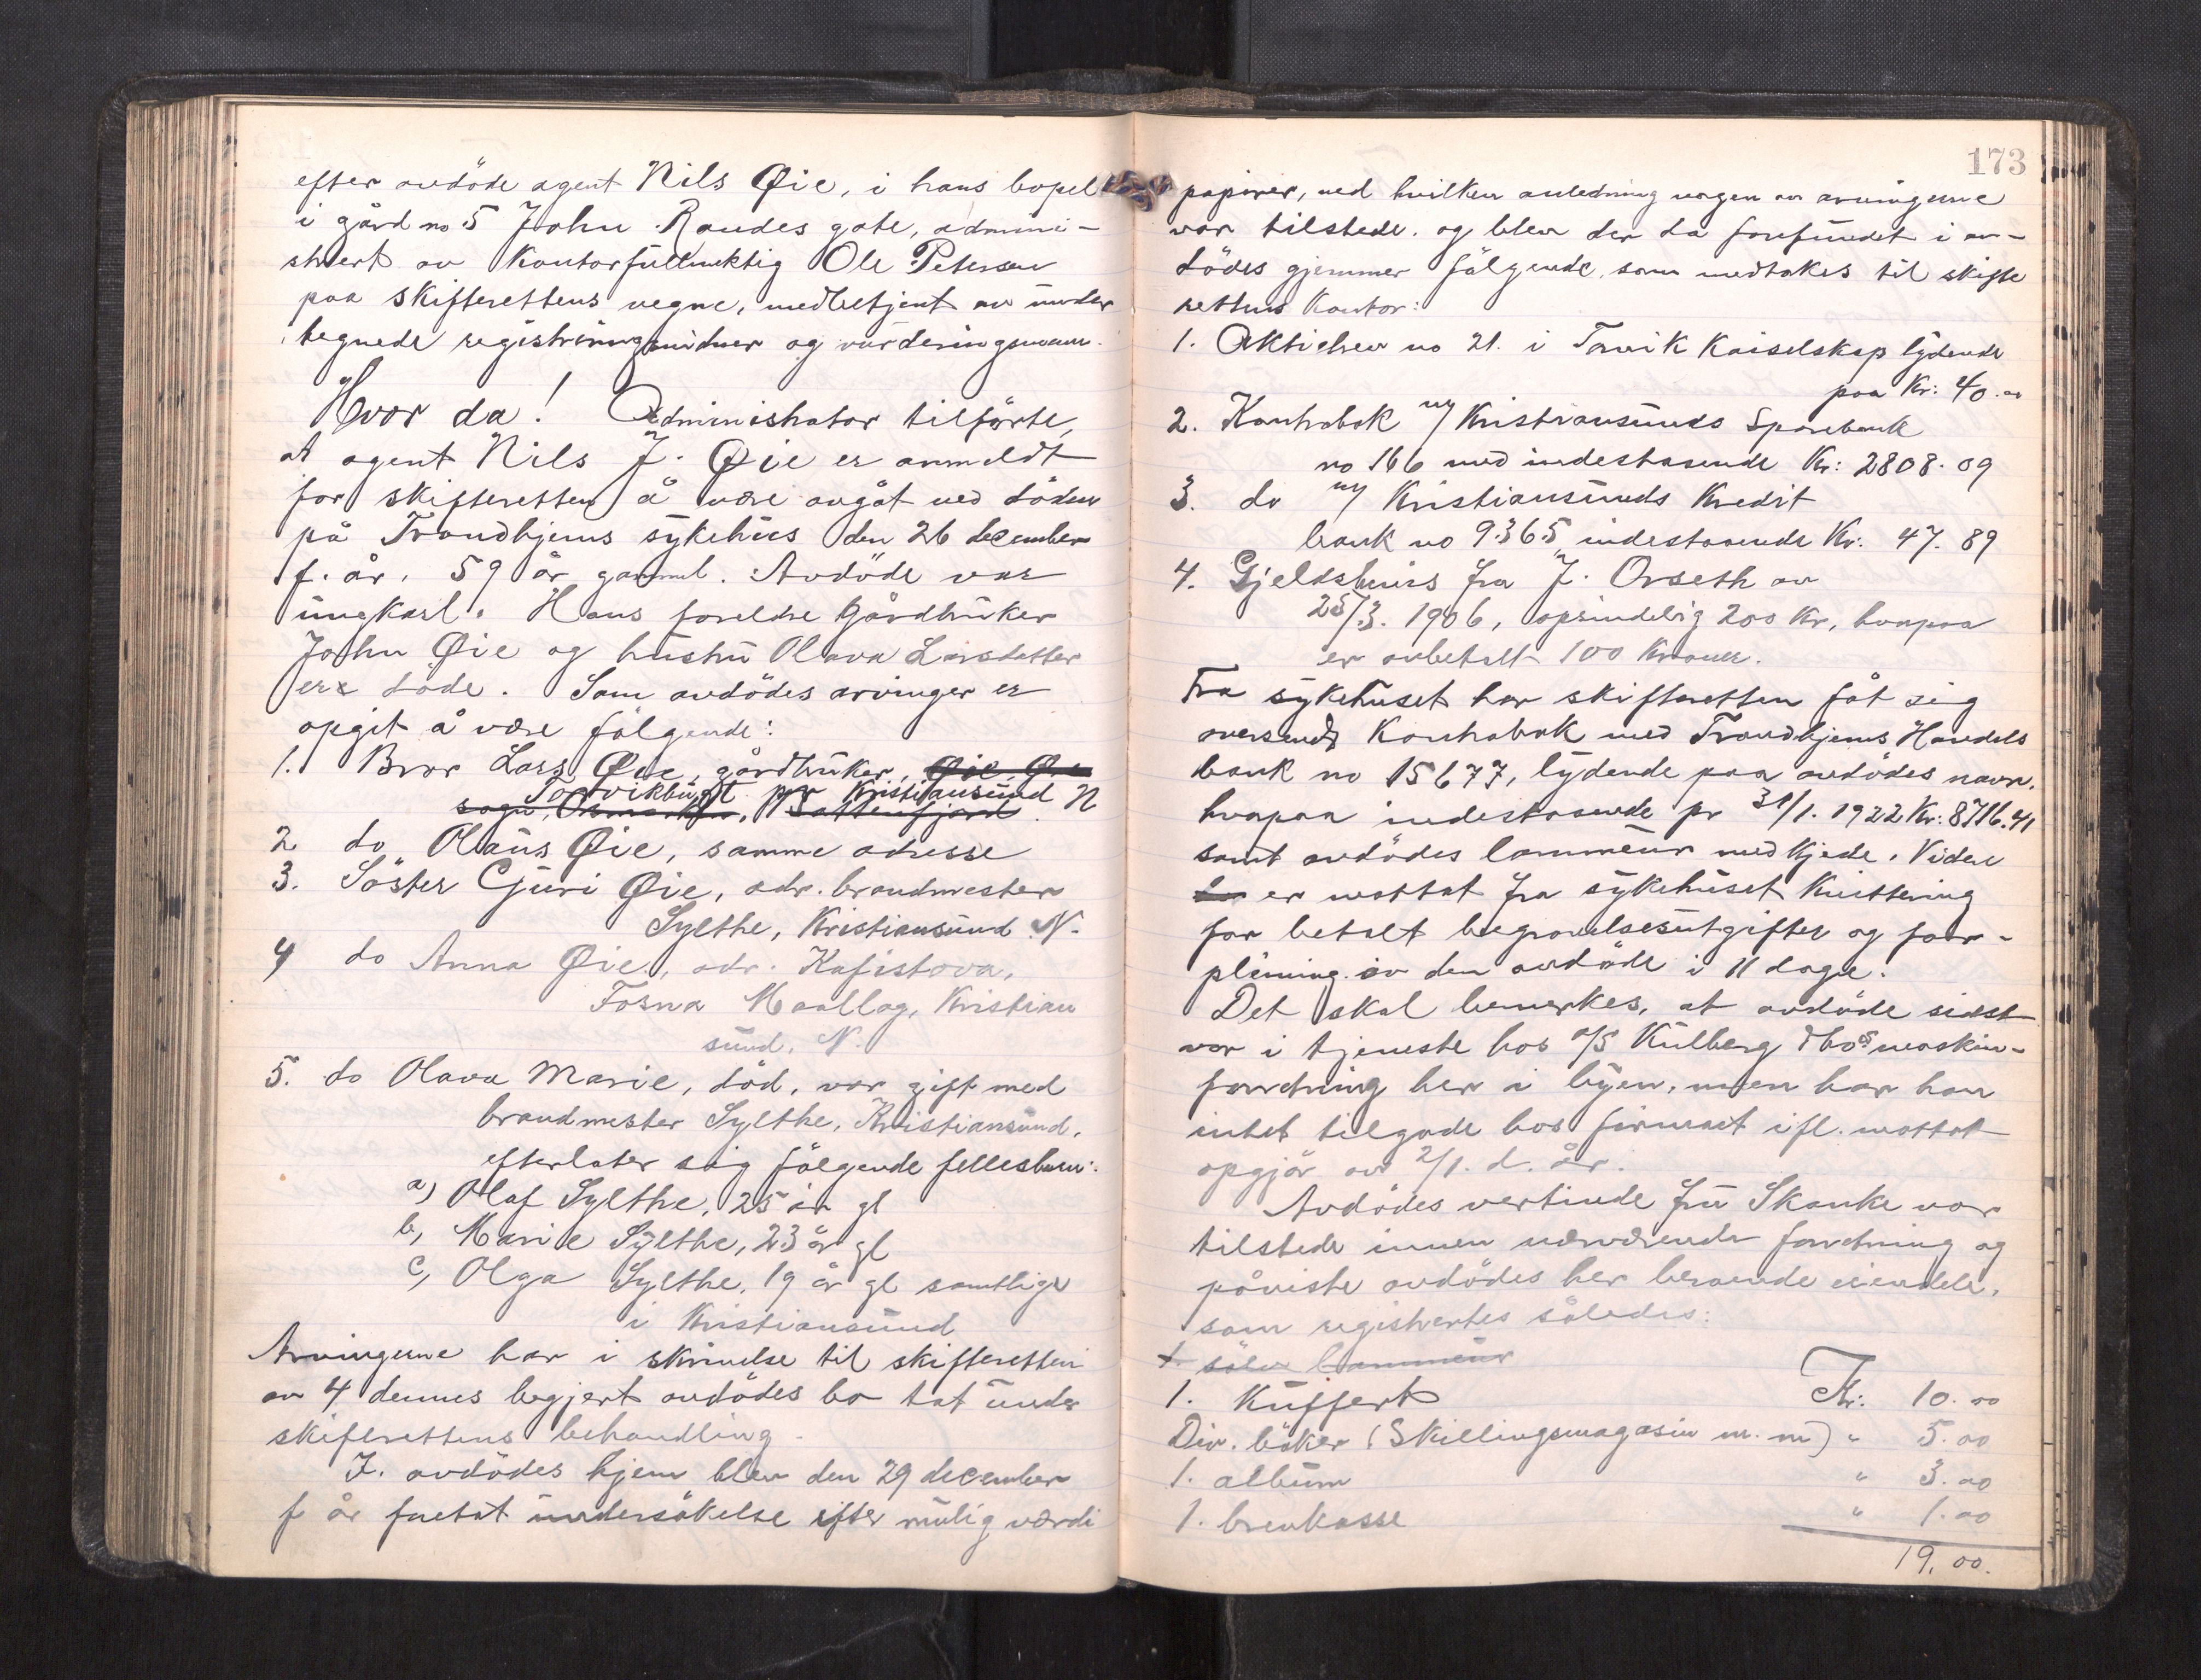 efter avdöde agent Nils Øie, i hans bopel
i gård no 5 John Randes gate, admini-
strert av Kontorfullmektig Ole Petersen
paa skifterettens vegne, medbetjent av under
tegnede registreringsvidner og vurderingsmænn.
Hvor da! Administrator tilförte,
at agent Nils J. Øie er anmeldt
for skifteretten å være avgåt ved döden
på Trondhjems sykehus den 26 december
f. år, 59 år gammel. Avdöde var
ungkarl. Hans foreldre gårdbruker
John Øie og hustru Olava Larsdatter
er döde. Som avdödes arvinger er
opgit å være fölgende:
1. Bror Lars Øie, gårdbruker, Øie, Øre
Torvikbugt pr Kristiansund N
sogn, Osmarken, Batnfjord
2 do Olaus Øie, samme adresse
3. Söster Guri Øie, adr. brandmester
Sylthe, Kristiansund N.
4 do Anna Øie, adr. Kafistova,
Fosna Maallag, Kristian
sund. N.
5. do Olava Marie, död, var gift med
brandmester Sylthe, Kristiansund,
efterlater sig fölgende fellesbarn:
a) Olaf Sylthe, 25 år gl
b, Marie Sylthe, 23 år gl
c, Olga Sylthe, 19 år gl samtlige
i Kristiansund
Arvingerne har i skrivelse til skifteretten
av 4 dennes begjert avdödes bo tat under
skifterettens behandling.
I. avdödes hjem blev den 29 december
f år foretat undersökelse efter mulig værdi
173
papirer, ved hvilken anledning ingen av arvingerne
var tilstede. og blev der da forefundet i av-
dödes gjemmer fölgende, som medtakes til skifte
rettens Kontor:
1. Aktiebrev no 21. i Torvik Kaiselskap lydende
paa Kr: 40.00
2. Kontrabok m/ Kristiansunds Sparebank
no 166 med indestaaende Kr: 2808.09
3. do m/ Kristiansunds Kredit
bank no 9365 indestaaende Kr. 47.89
4. Gjeldsbevis fra J. Orseth av
25/3. 1906, oprindelig 200 Kr, hvorpaa
er avbetalt 100 Kroner.
Fra sykehuset har skifteretten fåt sig
oversendt Kontrabok med Trondhjems Handels
bank no 15677, lydende paa avdödes navn,
hvorpaa indestaaende pr 31/1. 1922 Kr: 8716.41
samt avdödes lommeur med kjede. Videre
er mottat fra sykehuset Kvittering
for betalt begravelsesutgifter og for-
pleining av den avdöde i 11 dage.
Det skal bemerkes, at avdöde sidst
var i tjeneste hos A/S Kulberg & Cos maskin-
forretning her i byen, men har han
intet tilgode hos firmaet ifl. mottat
opgjör av 2/1. d. år.
Avdödes vertinde fru Skanke var
tilstede innen nærværende forretning og
påviste avdödes her beroende eiendele,
som registrertes således:
1. sölv lommeur
1. Kuffert Kr: 10.00
Div. böker (Skillingsmagasin m. m) " 5.00
1. album " 3.00
1. brevkasse " 1.00
19.00.